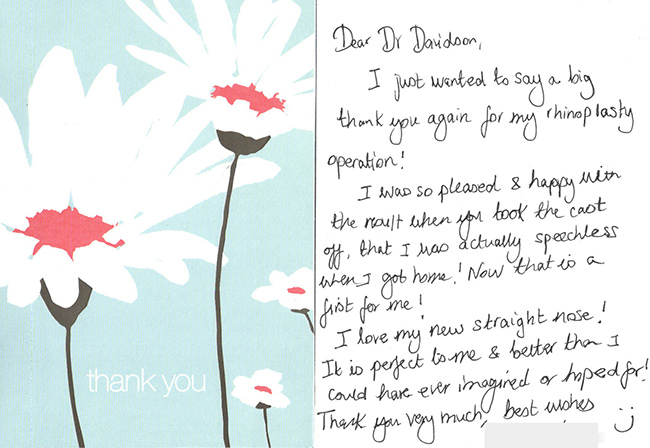 thank you
Dear Dr Davidson,
I just wanted to say a big
thank you again for my rhinoplasty
operation!
I was so pleased & happy with
the result when you took the cast
off, that I was actually speechless
when I got home! Now that is a
first for me!
I love my new straight nose!
It is perfect to me & better than I
could have ever imagined or hoped for!
Thank you very much, best wishes :)